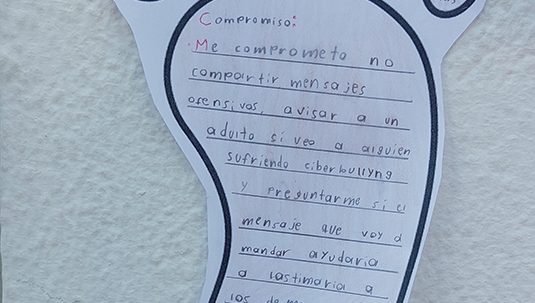 Compromiso:
• Me comprometo no
compartir mensajes
ofensivos, avisar a un
adulto si veo a alguien
sufriendo ciberbullyng
y preguntarme si el
mensaje que voy a
mandar ayudaria
a lastimaria a
los